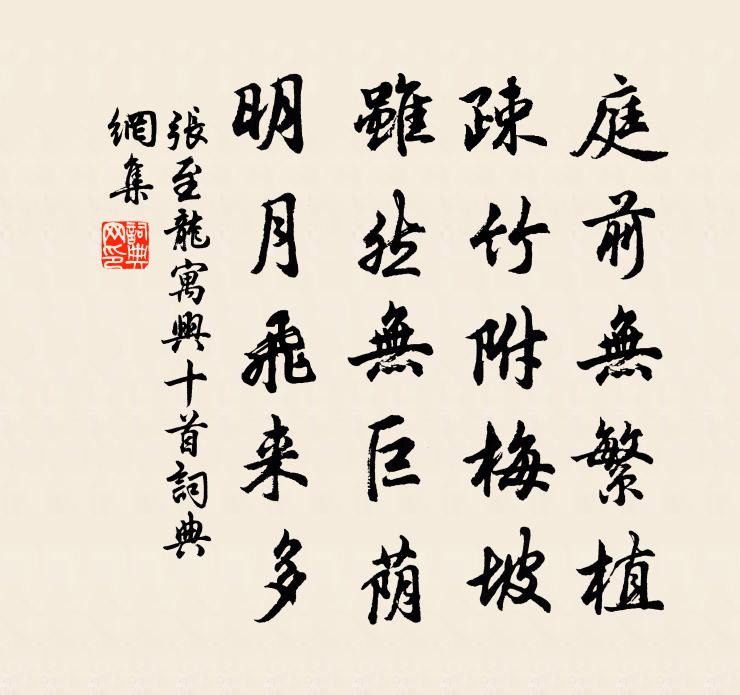 庭前無繁植
疎竹附梅坡
雖然無巨荫
明月飛来多
張至龍寓興十首詞典
網集
詞典网印